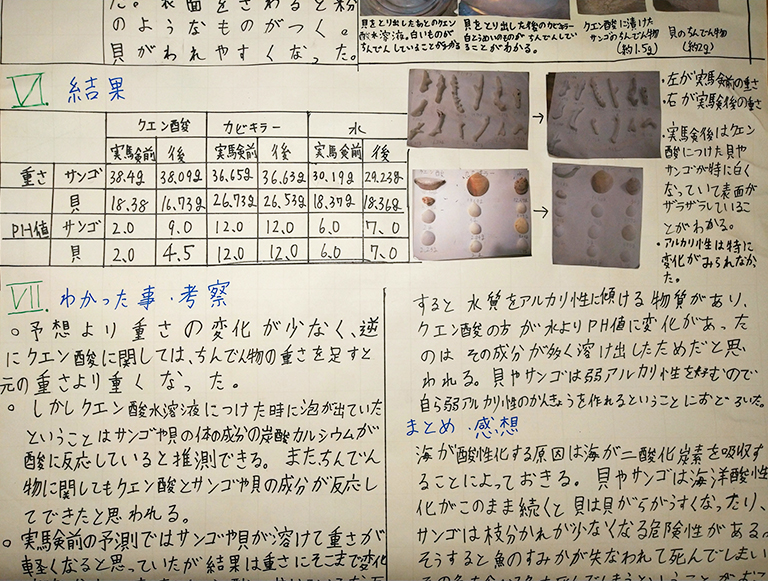 た。表面をさわると粉
のようなものがつく。
貝がわれやすくなった。
貝をとり出したあとのクエン
酸水溶液。白いものが
ちんでんしていることが分かる
貝をとり出した後のカビキラー
白とうめいのものがちんでんしてい
ることがわかる。
クエン酸に漬けた
サンゴのちんでん物
(約1.5g)
貝のちんでん物
(約2g)
VI. 結果
クエン酸 カビキラー 水
実験前 後 実験前 後 実験前 後
重さ サンゴ 38.4g 38.09g 36.65g 36.63g 30.19g 29.23g
貝 18.38 16.73g 26.73g 26.53g 18.37g 18.36g
PH値 サンゴ 2.0 9.0 12.0 12.0 6.0 7.0
貝 2.0 4.5 12.0 12.0 6.0 7.0
・左が実験前の重さ
右が実験後の重さ
・実験後はクエン
酸につけた貝や
サンゴが特に白く
なっていて表面が
ザラザラしているこ
とがわかる。
・アルカリ性は特に
変化がみられなかっ
た。
VII わかった事・考察
○予想より重さの変化が少なく、逆
にクエン酸に関しては、ちんでん物の重さを足すと
元の重さより重くなった。
○しかしクエン酸水溶液につけた時に泡が出ていた
ということはサンゴや貝の体の成分の炭酸カルシウムが
酸に反応していると推測できる。また、ちんでん
物に関してもクエン酸とサンゴや貝の成分が反応し
てできたと思われる。
○実験前の予測ではサンゴや貝が溶けて重さが
軽くなると思っていたが結果は重さにそこまで変化
すると水質をアルカリ性に傾ける物質があり、
クエン酸の方が水よりPH値に変化があった
のはその成分が多く溶け出したためだと思
われる。貝やサンゴは弱アルカリ性を好むので
自ら弱アルカリ性のかんきょうを作れるということにおどろいた。
まとめ・感想
海が酸性化する原因は海が二酸化炭素を吸収す
ることによっておきる。貝やサンゴは海洋酸性
化がこのまま続くと貝は貝がらがうすくなったり、
サンゴは枝分かれが少なくなる危険性がある。
そうすると魚のすみかが失なわれて死んでしまい